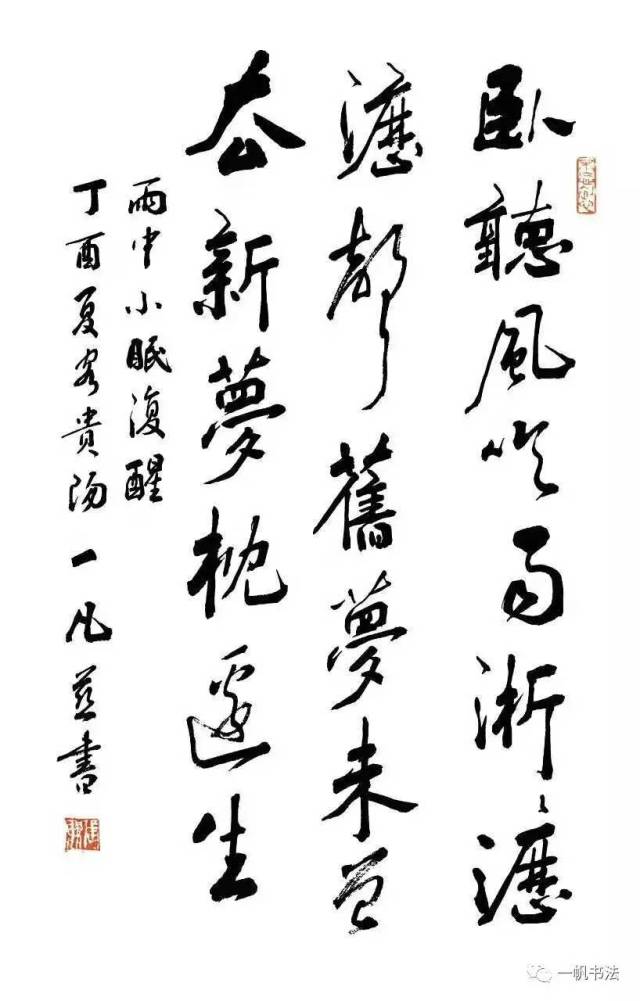 臥聽風吹雨淅〻瀝
瀝聲舊夢未曾
去新夢枕邊生
雨中小眠復醒
丁酉夏客貴陽一凡並書
一帆书法